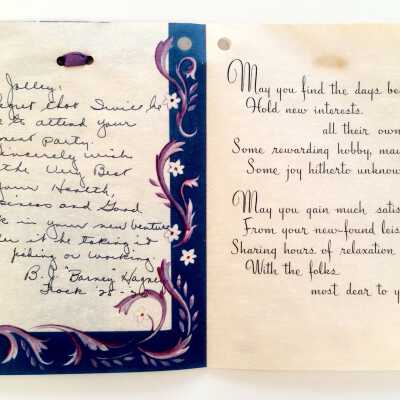 Jolley:
egret that I will be
to attend your
Party.
Sincerely wish
the Very Best
your Health,
siness and Good
in your new
it be taking it
fishing or working.
B. J. "Barney" Hagne
Track 25
May you find the days be
Hold new interests.
all their own
Some rewarding hobby, may
Some joy hitherto unknow
May you gain much satis
From your new-found leis
Sharing hours of relaxation
With the folks
most dear to y